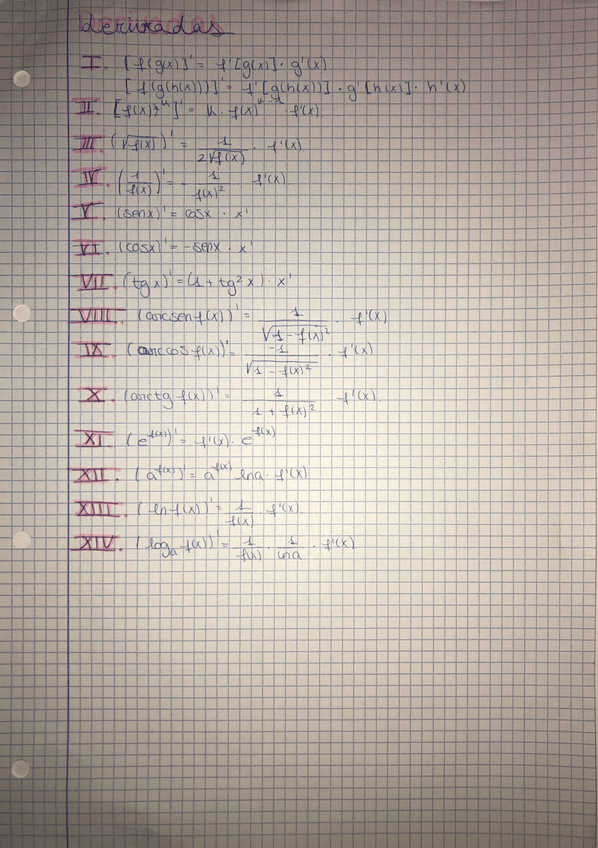 derivadas
I. [f(g(x)]' = f'[g(x)] · g'(x)
[f(g(h(x)))]' = f'[g(h(x))] · g'[h(x)] · h'(x)
II. [f(x)^n]' = n · f(x)^{n-1} · f'(x)
III. (√f(x))' = 1/(2√f(x)) · f'(x)
IV. (1/f(x))' = - 1/f(x)² · f'(x)
V. (senx)' = cosx · x'
VI. (cosx)' = -senx · x'
VII. (tgx)' = (1 + tg²x) · x'
VIII. (arcsenf(x))' = 1/√(1 - f(x)²) · f'(x)
IX. (arccosf(x))' = -1/√(1 - f(x)²) · f'(x)
X. (arctg f(x))' = 1/(1 + f(x)²) · f'(x)
XI. (e^{f(x)})' = f'(x) · e^{f(x)}
XII. (a^{f(x)})' = a^{f(x)} · lna · f'(x)
XIII. (lnf(x))' = 1/f(x) · f'(x)
XIV. (log_a f(x))' = 1/f(x) · 1/lna · f'(x)